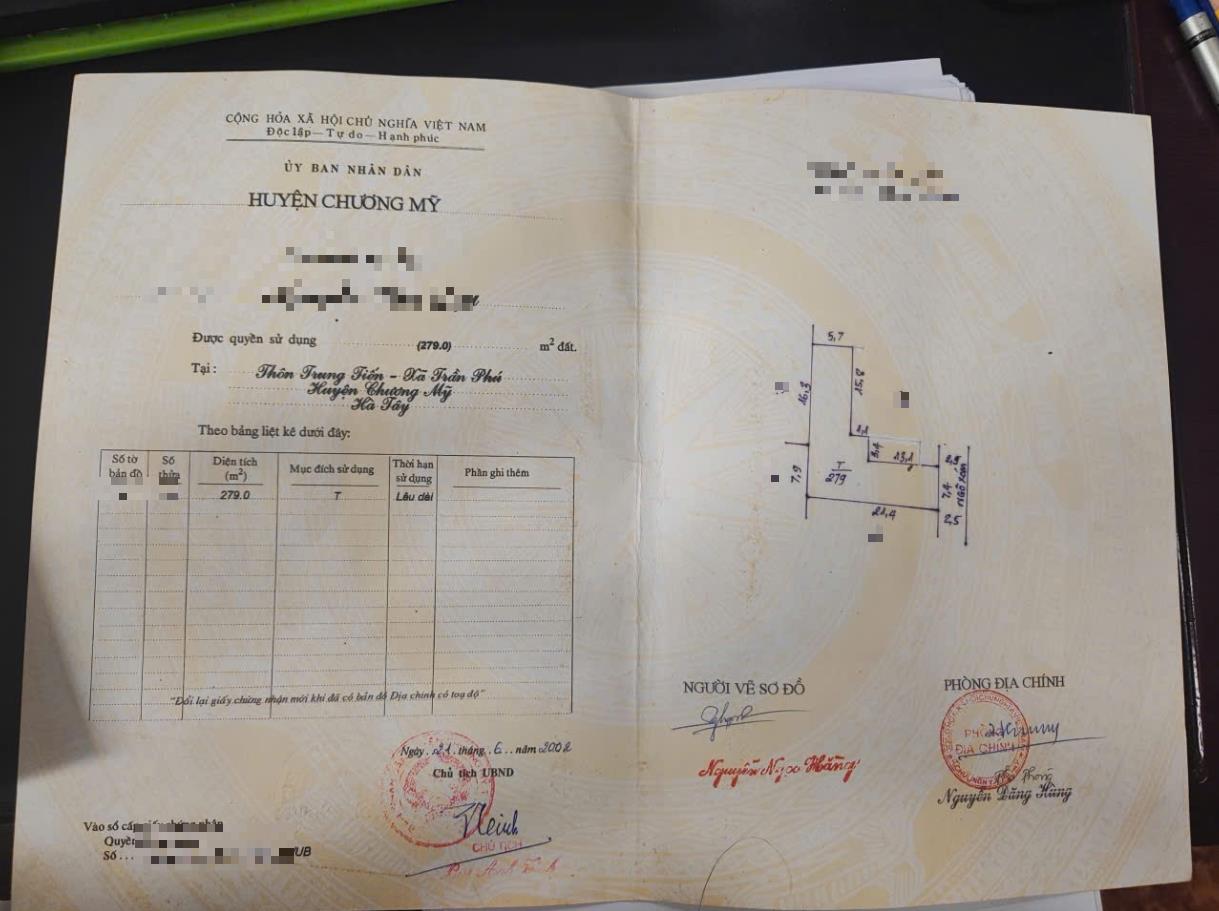 CỘNG HÒA XÃ HỘI CHỦ NGHĨA VIỆT NAM
Độc lập – Tự do – Hạnh phúc
ỦY BAN NHÂN DÂN
HUYỆN CHƯƠNG MỸ
Được quyền sử dụng (279.0) m² đất.
Tại: Thôn Trung Tiến - Xã Trần Phú
Huyện Chương Mỹ
Hà Tây
Theo bảng liệt kê dưới đây:
Số tờ bản đồ Số thửa Diện tích (m²) Mục đích sử dụng Thời hạn sử dụng Phần ghi thêm
279.0 T Lâu dài
"Đổi lại giấy chứng nhận mới khi đã có bản đồ Địa chính có toạ độ"
Ngày 21 tháng 6 năm 2002
Chủ tịch UBND
CHỦ TỊCH
Vào sổ cấp giấy chứng nhận
Quyết
Số... UB
5,7
16,3
15,8
3,4
13,1
7,9
T
279
7,4
NGÕ XÓM
21,4
2,5
NGƯỜI VẼ SƠ ĐỒ
Nguyễn Ngọc Hằng
PHÒNG ĐỊA CHÍNH
PHÒNG
ĐỊA CHÍNH
Phó Phòng
Nguyễn Đăng Hùng